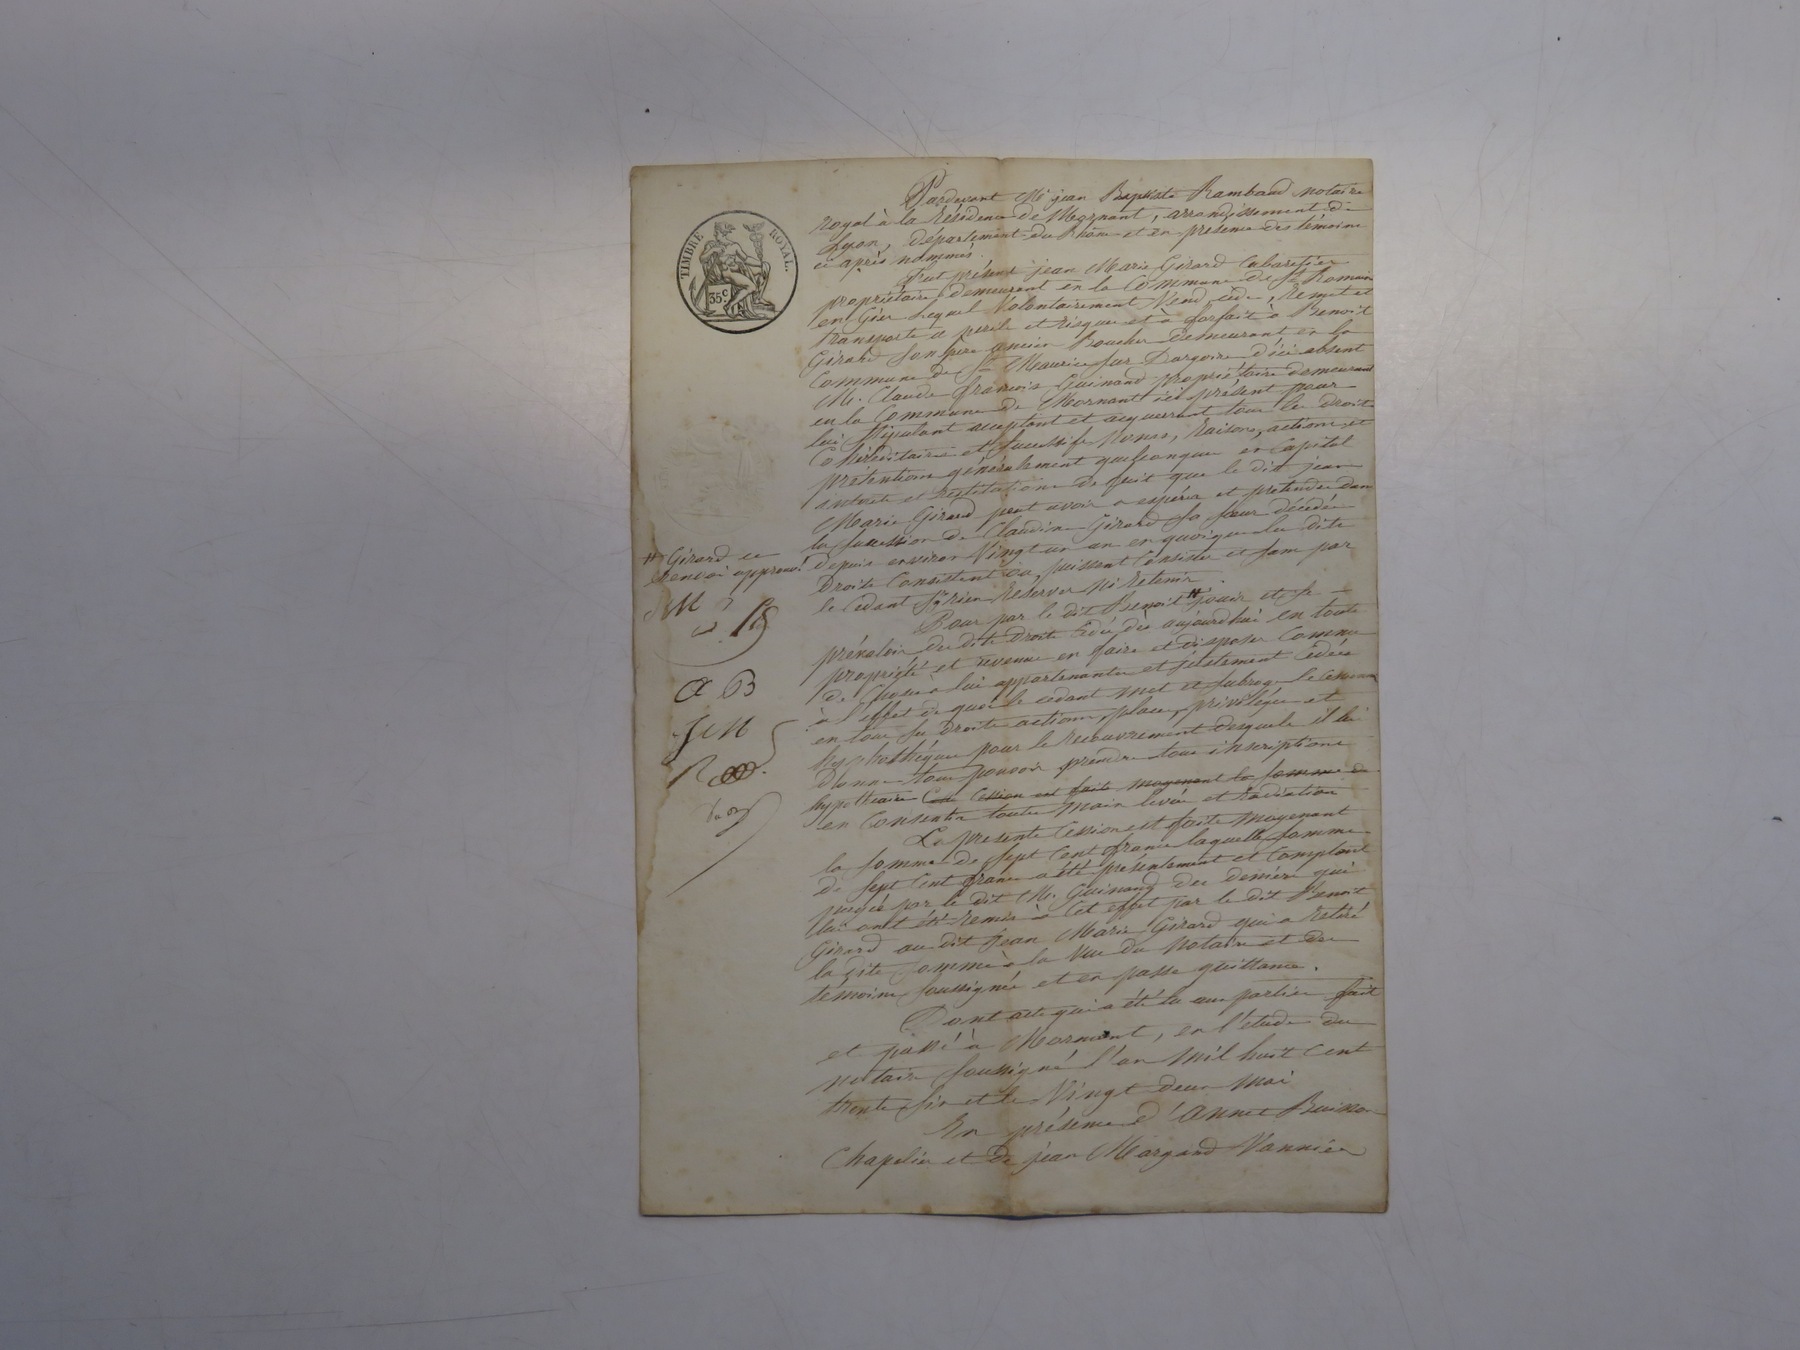 TIMBRE ROYAL.
35 c
Pardevant Me jean Baptiste Rambaud notaire
royal à la résidence de Mornant, arrondissement de
Lyon, département du Rhône et en présence des témoins
ci après nommés.
Fut présent jean Marie Girard Cabaretier
propriétaire, demeurant en la Commune de St Romain
en Gier Lequel Volontairement Vend, cède, remet et
transporte a perils et risques et à forfait à Benoit
Girard son frère ancien Boucher demeurant en la
Commune de St Maurice sur Dargoire d'ici absent
M. Claude françois Guinand propriétaire demeurant
en la Commune de Mornant ici présent pour
lui Stipulant acceptant et acquerrant tous les droits
Cohéréditaires et Successifs Noms, Raisons, actions et
prétentions généralement quelconques en Capital
intérêts et restitutions de fruit que le dit jean
Marie Girard peut avoir a espérer et prétendre dans
la succession de Claudine Girard sa sœur décédée
depuis environ Vingt un an en quoique les dits
Droits Consistent ou puissent Consister et sans par
le Cédant Sy rien Reserver Ni Retenir.
Pour par le dit Benoit # jouir et se
prévaloir des dits droits Cédés dès aujourdhui en toute
propriété et revenu en faire et disposer Comme
de Chose à lui appartenante et justement Cédée
à l'effet de quoi le cédant met et subroge le Cessionnaire
en tous ses droits actions, place, privilèges et
hyphothèques pour le recouvrement desquels il lui
Donne tout pouvoir prendre tous inscriptions
hypothécaire Cette Cession est faite moyenant la somme de
en Consentir toute main levée et radiation
La présente Cession est faite moyenant
la somme de sept Cent francs laquelle somme
de sept Cent francs a été présentement et Comptant
payée par le dit M. Guinand des deniers qui
lui ont été remis à Cet effet par le dit Benoit
Girard au dit Jean Marie Girard qui a Retiré
la dite somme à la Vue du Notaire et des
témoins soussignés et en passe quittance.
Dont acte qui a été lu aux parties fait
et passé à Mornant, en l'étude du
notaire soussigné l'an mil huit Cent
trente six et le Vingt deux mai
En présence d'Annet Buisson
Chapelier et de jean Margand Vannier
# Girard ce
renvoi approuvé
JgM
a B
JCM
R